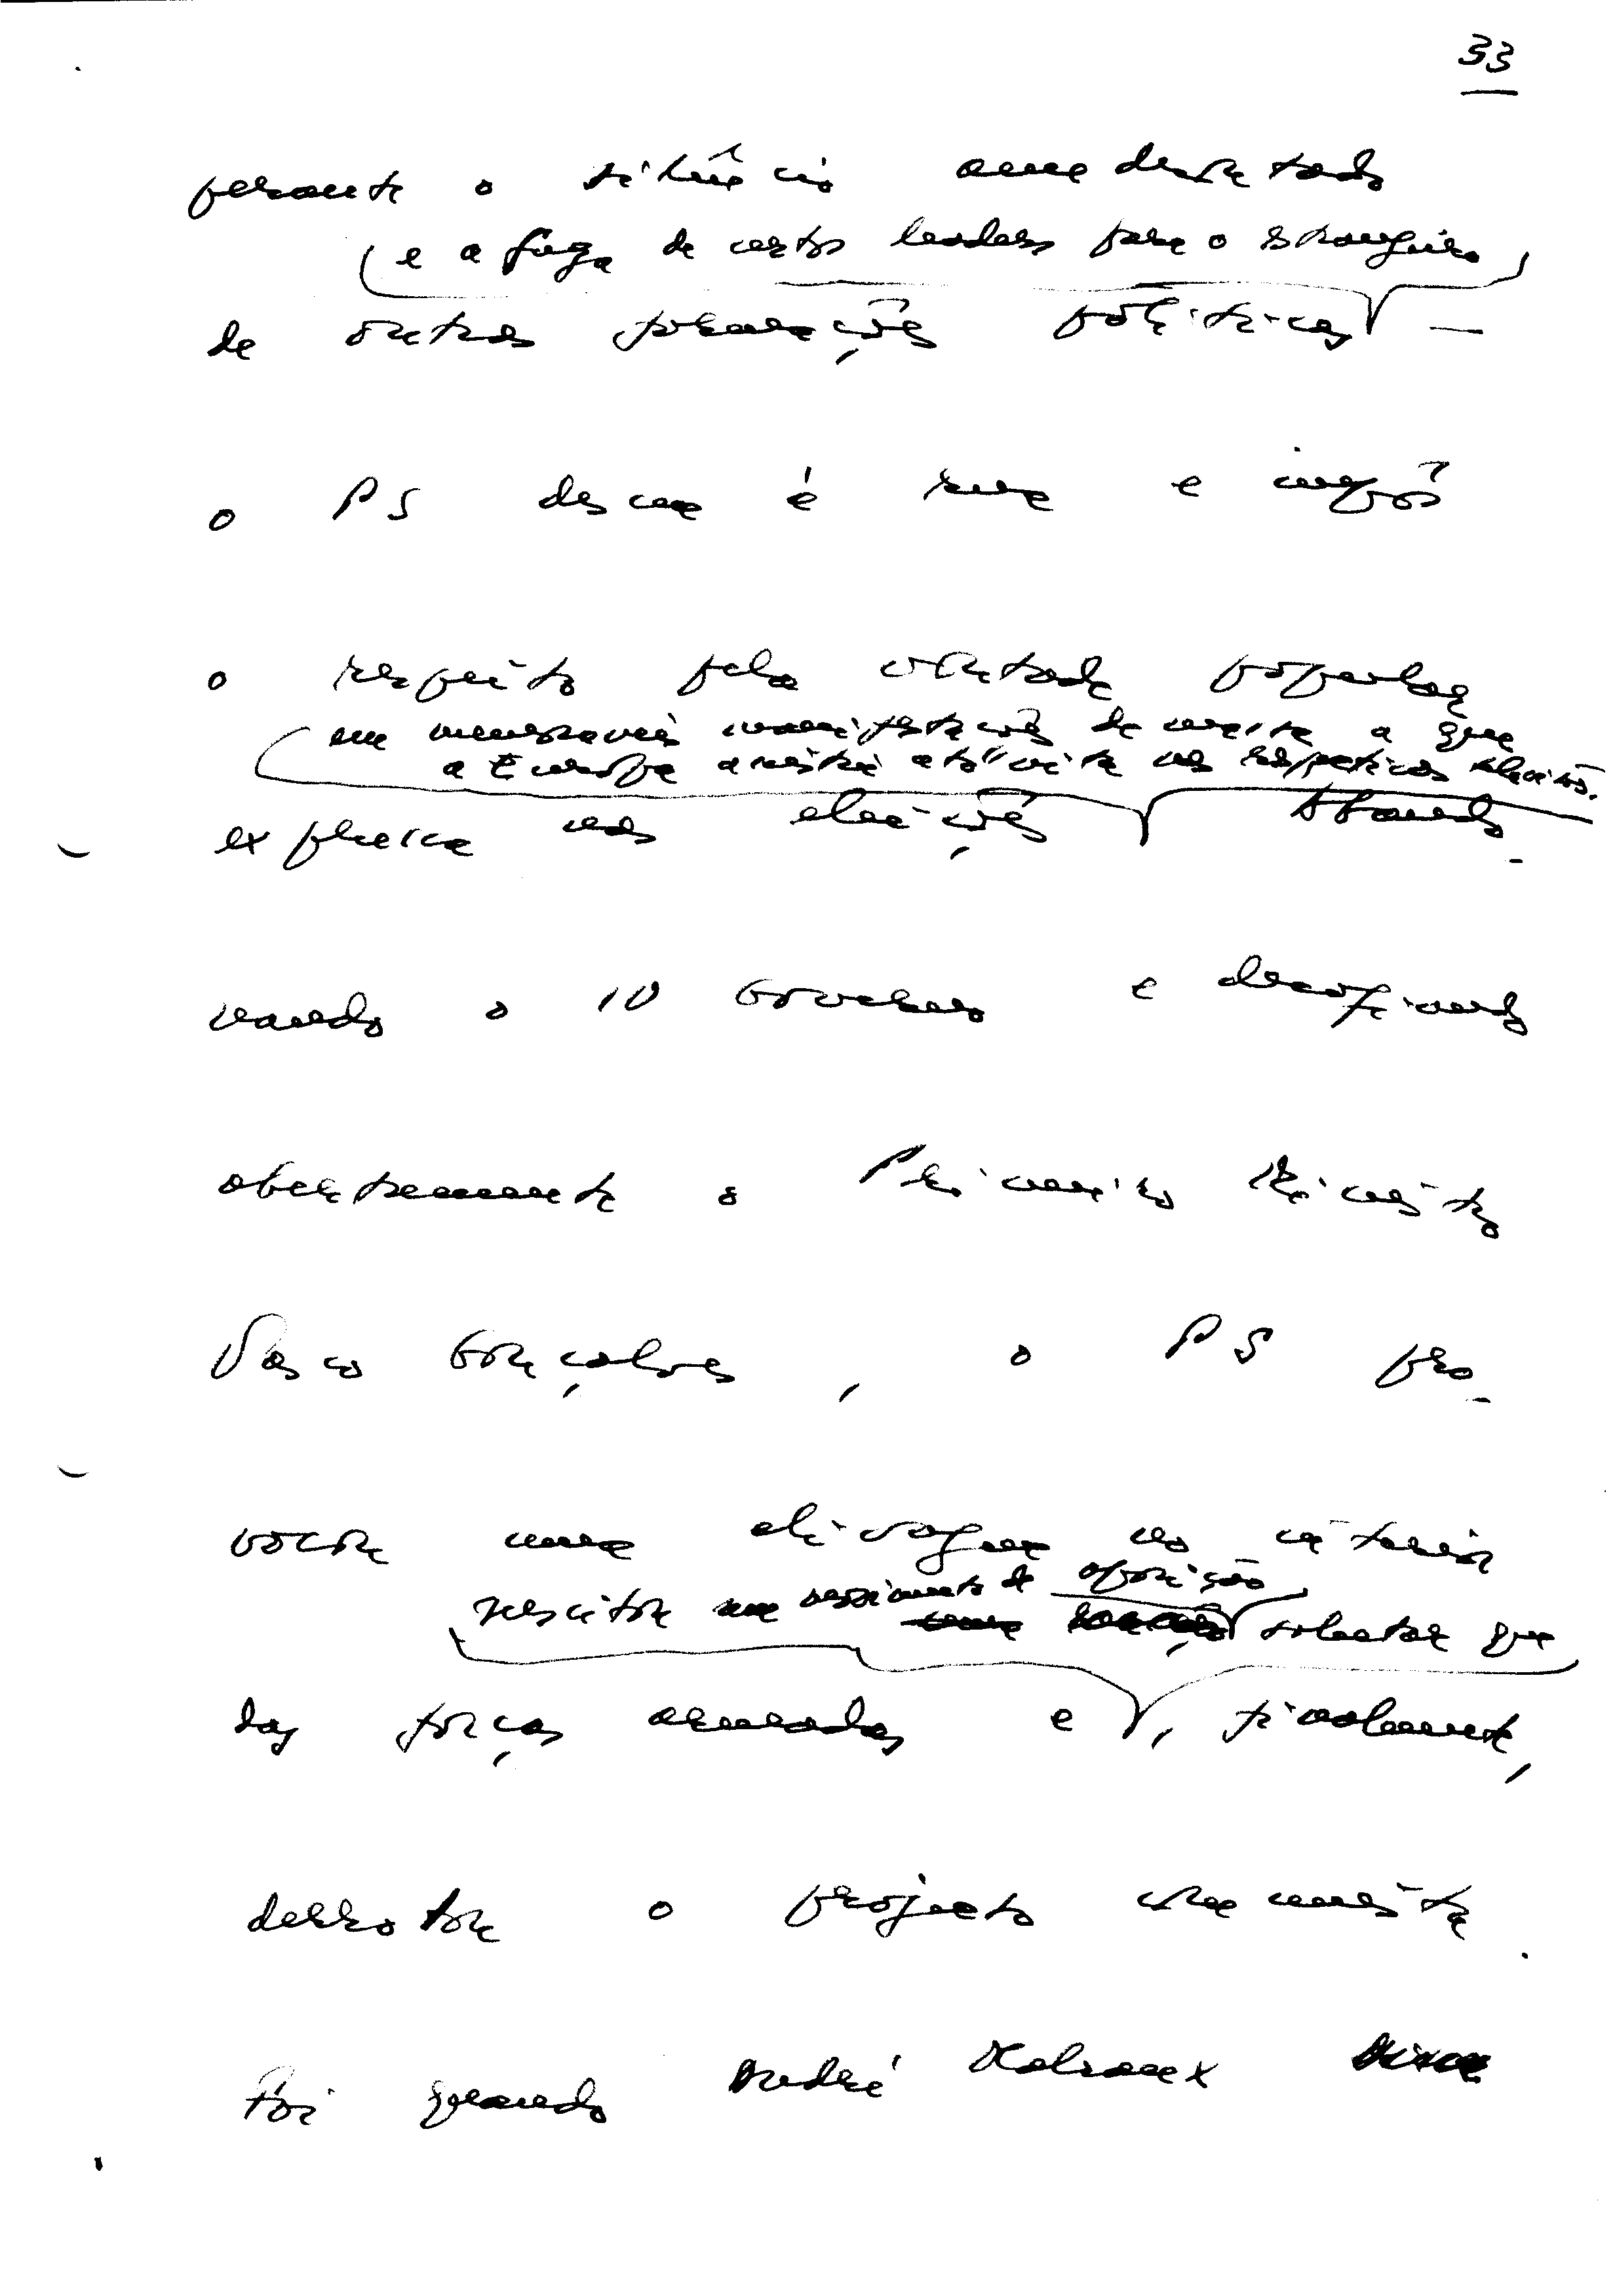 33
perante o silêncio amedrontado
e a fuga de certos leaders para o estrangeiro
de outras formações políticas —
o PS desce é rua e impõe
o respeito pela vontade popular
em memoráveis manifestações de massa a que
a Europa assistiu atónita nas respectivas
expressa nas eleições. Abando-
nando o IV Governo e desafiando
abertamente o Primeiro Ministro
Vasco Gonçalves, o PS pro-
voca uma clivagem no interior
suscitar um movimento de oposição sobretudo que
das forças armadas e, finalmente,
derrotar o projecto comunista.
Foi quando André Malraux